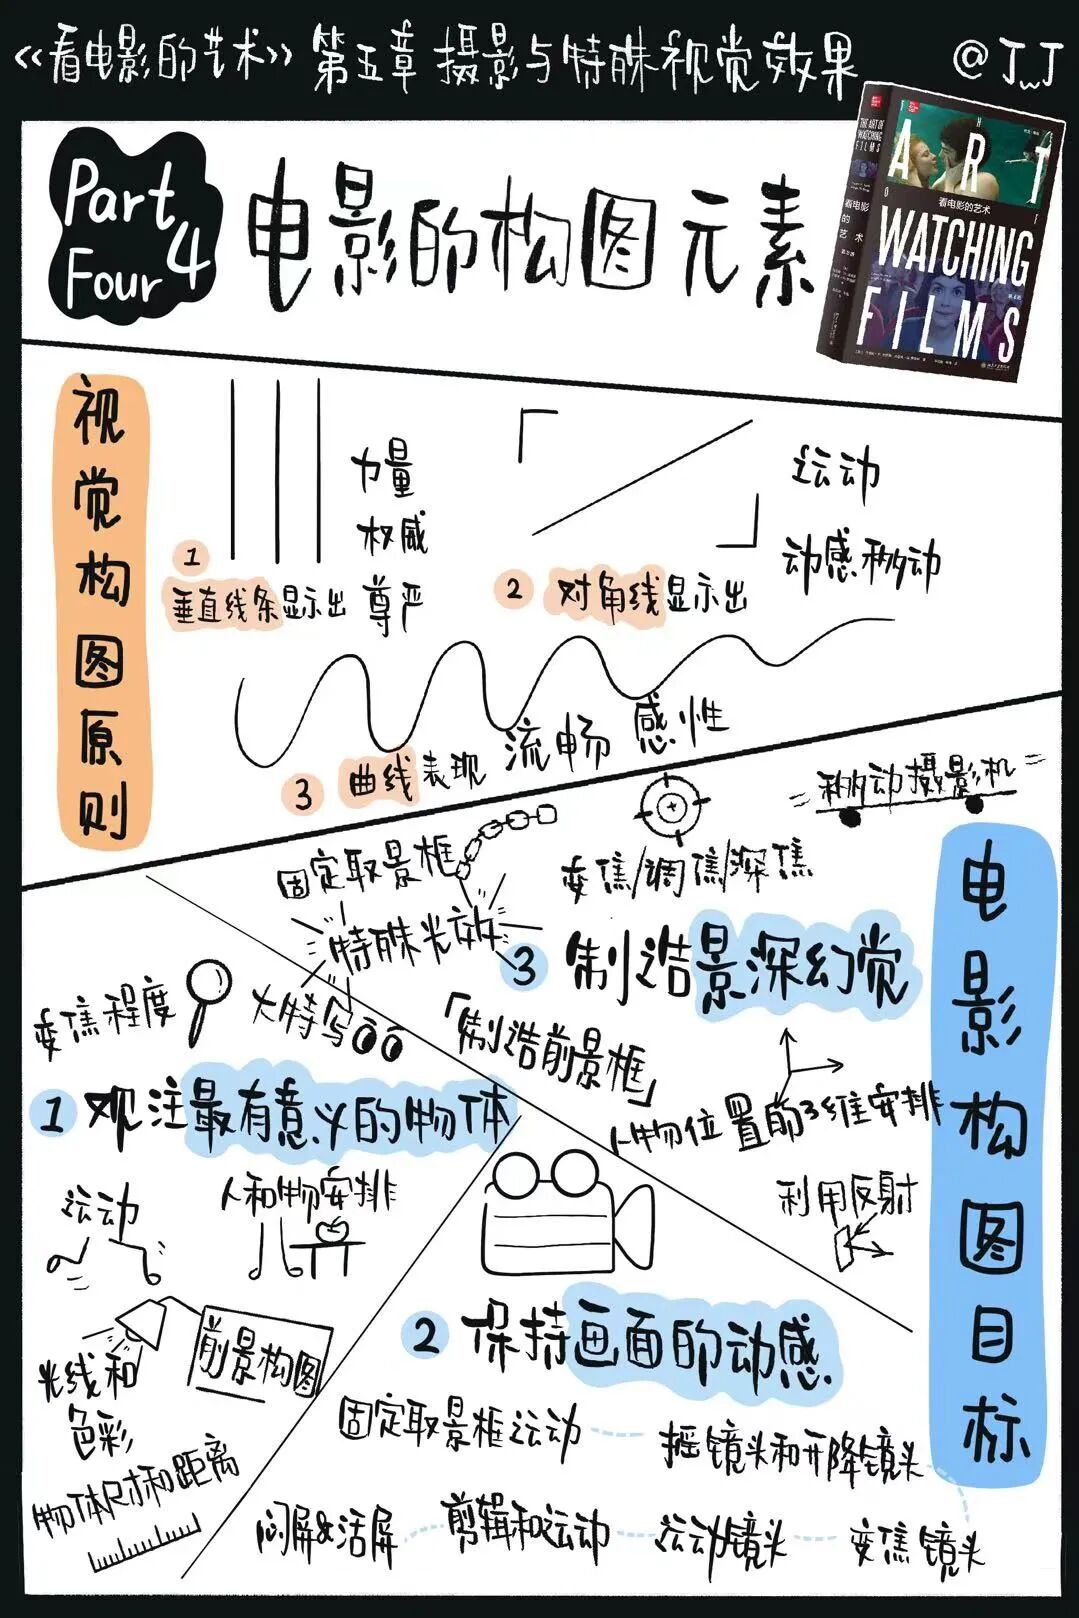 《看电影的艺术》第五章 摄影与特殊视觉效果 @J_J
Part Four 4
电影的构图元素
THE ART OF WATCHING FILMS
看电影的艺术
ART
OF
看电影的艺术
WATCHING
FILMS
视觉构图原则
1 垂直线条显示出
力量
权威
尊严
2 对角线显示出
运动
动感移动
3 曲线表现 流畅 感性
电影构图目标
1 观注最有意义的物体
变焦程度
大特写
运动
人和物安排
光线和
色彩
前景构图
物体尺寸和距离
2 保持画面的动感
固定取景框运动
摇镜头和升降镜头
变焦镜头
运动镜头
剪辑和运动
闪屏&活屏
3 制造景深幻觉
移动摄影机
变焦/调焦/深焦
固定取景框
特殊光效
「制造前景框」
人物位置的3维安排
利用反射